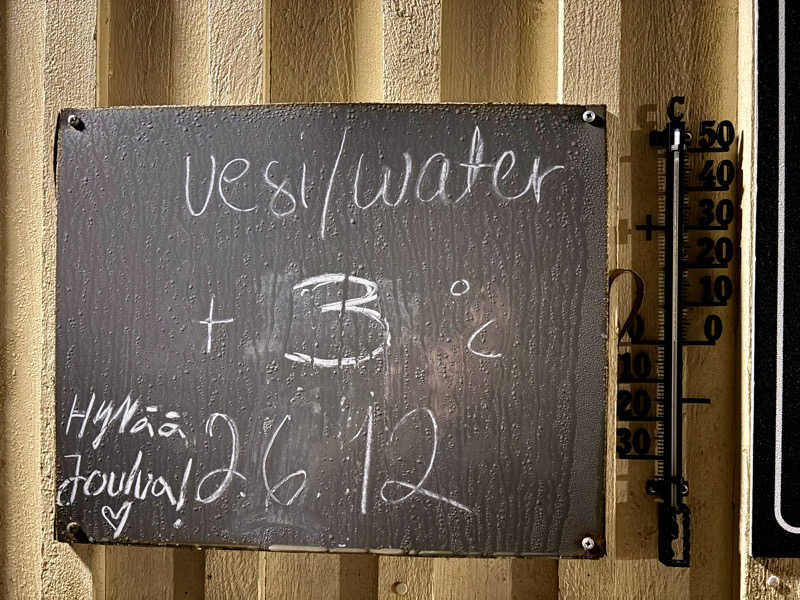 vesi/water
+ 3 °c
Hyvää
Joulua!
26.12
C
50
40
30
+
20
10
0
10
20
30